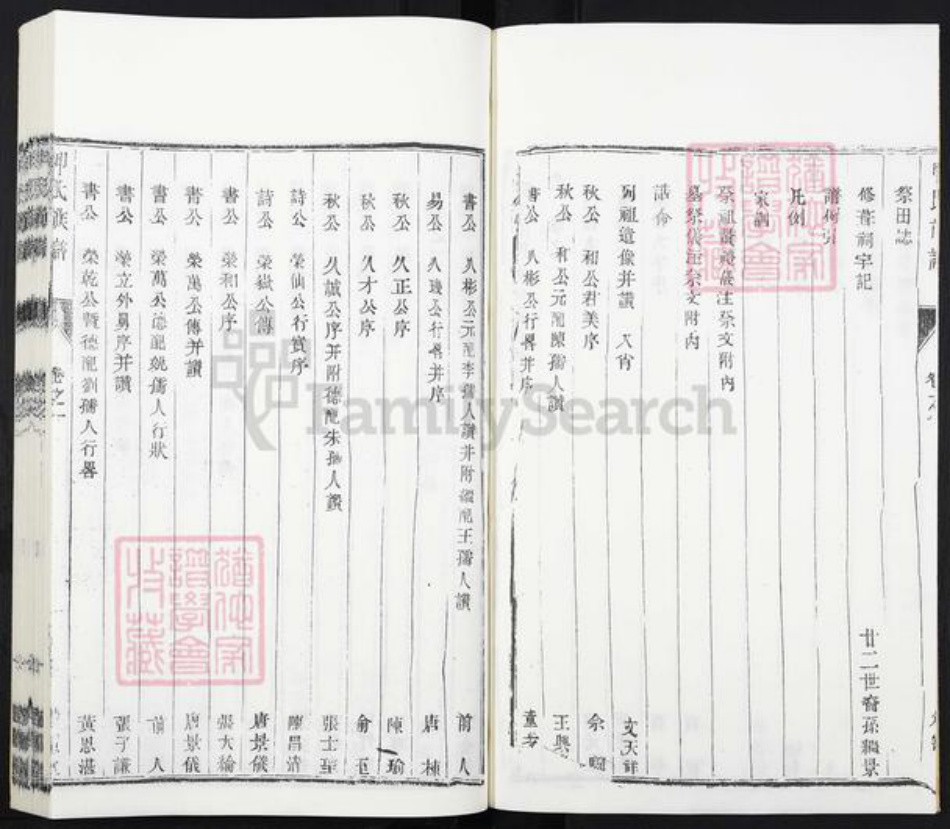 祭田誌
修葺祠宇記 廿二世裔孫繼景
譜例引
凡例
家訓
祭祖禮儀注祭文附內
墓祭儀注祭文附內
誥命
列祖遺像并讚 文天祥
秋公 和公君美序
秋公 和公元配陳孺人讚 王興
書公 八彬公行畧并序 董
書公 八彬公元配李孺人讚并附繼配王孺人讚 前人
易公 八璣公行畧并序 唐棟
秋公 久正公序 陳瑜
秋公 久才公序 俞
秋公 久誠公序并附德配朱孺人讚 張士至
詩公 榮仙公行實序 陳昌清
詩公 榮嶽公傳 唐景儀
書公 榮和公序 張大綸
書公 榮萬公傳并讚 唐景儀
書公 榮萬公德配姚孺人行狀 前人
書公 榮立外舅序并讚 張子謙
書公 榮乾公暨德配劉孺人行畧 黃恩湛
氏族譜 卷之一
猶他家譜學會收藏
猶他家譜學會收藏
FamilySearch